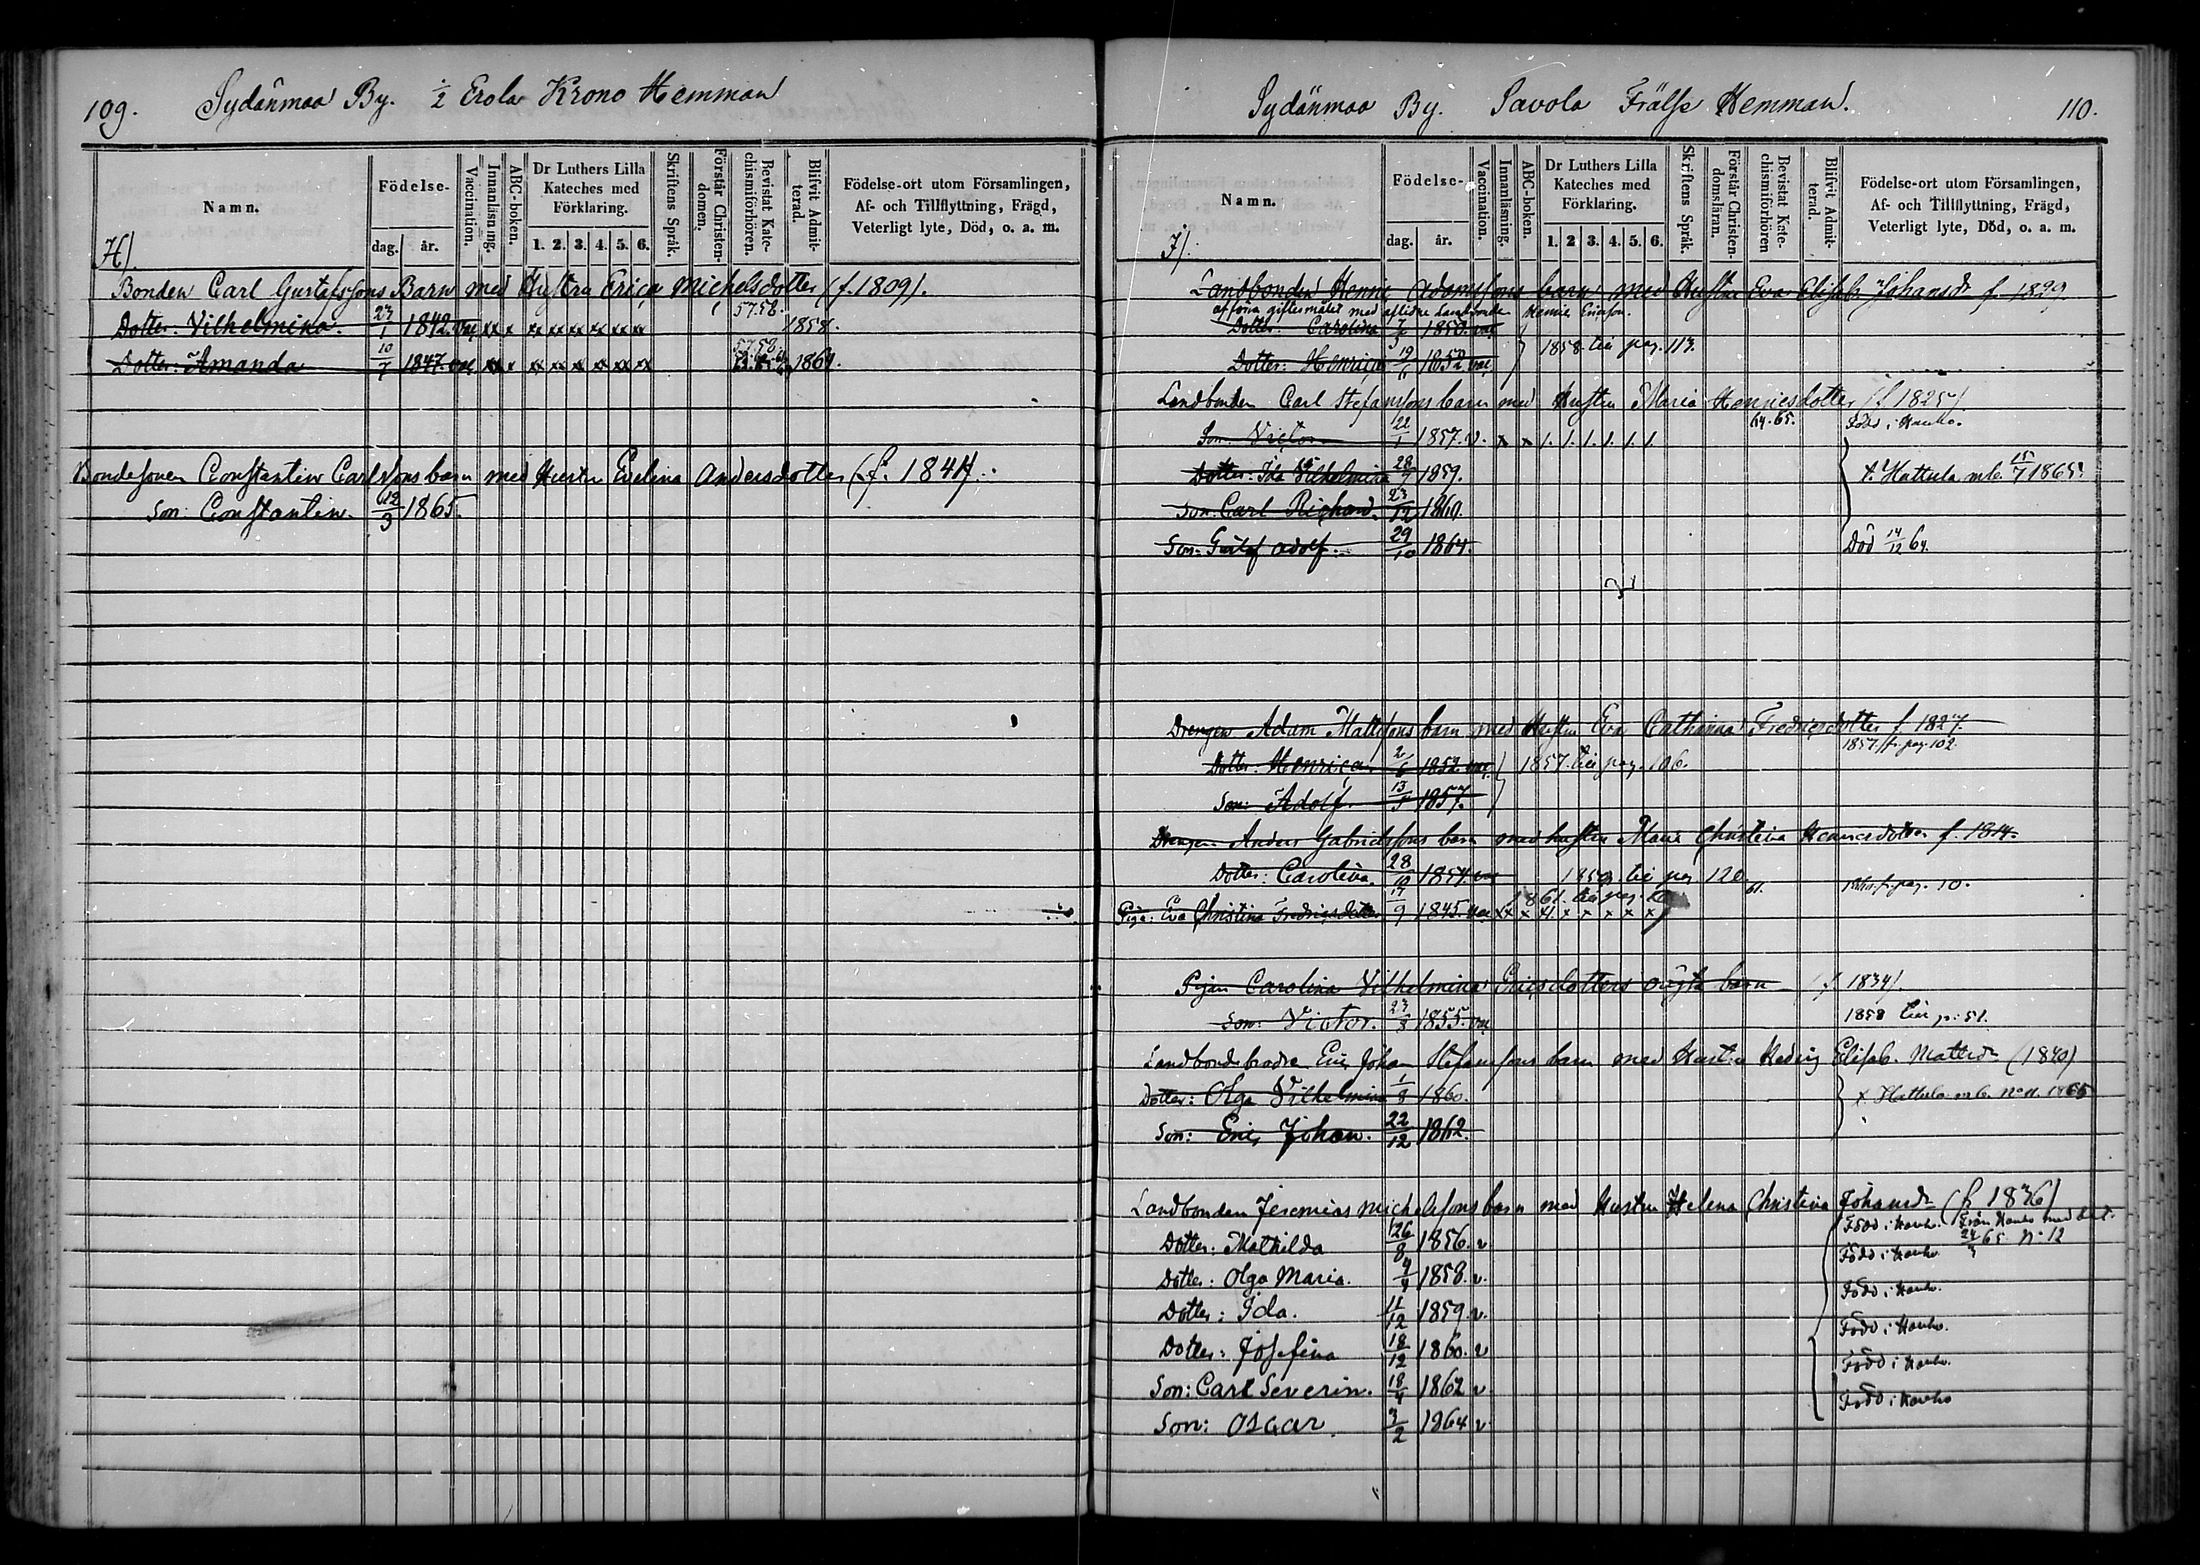 109. Sydänmaa By. 1/2 Erola Krono Hemman
Namn. Födelse- dag. år. Vaccination. Innanläsning. ABC-boken. Dr Luthers Lilla Kateches med Förklaring. 1. 2. 3. 4. 5. 6. Skriftens Språk. Förstår Christendomen. Bevistat Katechismiförhören. Blifvit Admitterad. Födelse-ort utom Församlingen, Af- och Tillflyttning, Frägd, Veterligt lyte, Död, o. a. m.
H).
Bonden Carl Gustafssons Barn med Hustru Erica Michelsdotter (f. 1809).
Dotter: Vilhelmina. 23/1 1842. vac xx x xx xx xx xx xx xx 57.58. 1858.
Dotter: Amanda 10/7 1847. vac xx x xx xx xx xx xx xx 57.58. 1864.
Bondesonen Constantin Carlssons barn med Hustru Evelina Andersdotter (f. 1844).
Son: Constantin. 12/3 1865.
Sydänmaa By. Savola Frälse Hemman. 110.
Namn. Födelse- dag. år. Vaccination. Innanläsning. ABC-boken. Dr Luthers Lilla Kateches med Förklaring. 1. 2 3. 4. 5. 6. Skriftens Språk. Förstår Christendomsläran. Bevistat Katechismiförhören Blifvit Admitterad. Födelse-ort utom Församlingen, Af- och Tillflyttning, Frägd, Veterligt lyte, Död, o. a. m.
J).
Landbonden Henric Adamssons barn med Hustru Eva Elisab. Johansdr f. 1829.
af förra giftermålet med aflidne Landbonden Henric Ericsson.
Dotter: Carolina 1850. vac
Dotter: Henrica 1852 vac 1858 till pag. 113.
Landbonden Carl Stefanssons barn med Hustru Maria Henricsdotter (f 1825)
Son Victor 22/1 1857. v. x x 1. 1. 1. 1. 1. 1. 64.65. Född i Hauho.
Dotter: Ida Vilhelmina 28/7 1859. t. Hattula mb. 15/7 1865.
Son: Carl Richard. 23/12 1860.
Son: Gustaf Adolf. 29/10 1864. Död 14/12 64.
Drengen Adam Mattssons barn med Hustru Eva Catharina Fredricsdotter f. 1827.
Dotter: Henrica 2/6 1852 vac 1857 till pag. 106. 1857 fr. pag. 102.
Son: Adolf. 1857.
Drengen Anders Gabrielssons barn med hustru Maria Christina Henricsdotter f. 1814.
Dotter: Carolina. 28/10 1854. vac 1859 till pag 120
1861 till pag. 61.
Piga: Eva Christina Fredricsdotter 9 1845. vac xx x x x x x x x
Pigan Carolina Vilhelmina Ericsdotters oägta barn (f 1834)
Son: Victor. 23/8 1855. vac 1858 till p. 51.
Landbondebrodren Eric Johan Stefanssons barn med Hustru Hedvig Elisab. Mattsdr (1840)
Dotter: Olga Vilhelmina 1/8 1860. t. Hattula mb. No 11. 1865
Son: Eric Johan. 22/12 1862.
Landbonden Jeremias Michelssons barn med Hustru Helena Christina Johansdr (f 1836)
Dotter: Mathilda 26/8 1856. v. Född i Hauho. Från Hauho med bet. 24/3 65 No 12
Dotter: Olga Maria. 1858. v. Född i Hauho.
Dotter: Ida. 11/12 1859. v. Född i Hauho.
Dotter: Josefina 18/12 1860. v Född i Hauho.
Son: Carl Severin. 18/4 1862 v Född i Hauho.
Son: Oscar. 3/2 1864 v Född i Hauho